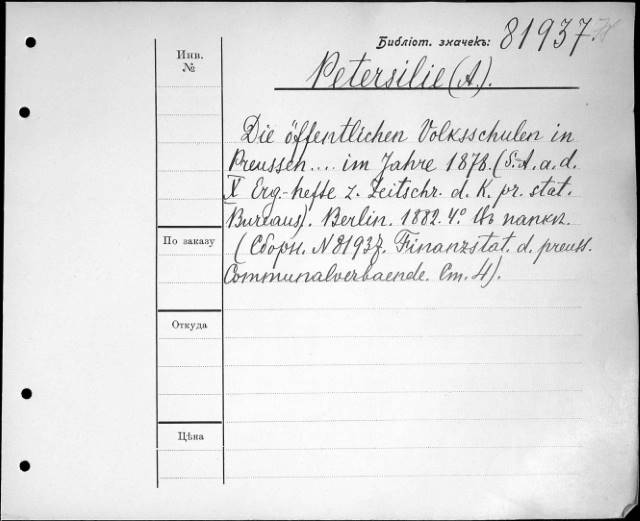 Библіот. значекъ: 81937
Инв.
№
Petersilie (A).
Die öffentlichen Volksschulen in
Preussen... im Jahre 1878. (S.-A. a. d.
X Erg.-hefte z. Zeitschr. d. K. pr. stat.
Bureaus). Berlin. 1882. 4.° Въ папкѣ.
По заказу
(Сборн. N 81937. Finanzstat. d. preuss.
Communalverbaende. Ст. 4).
Откуда
Цѣна